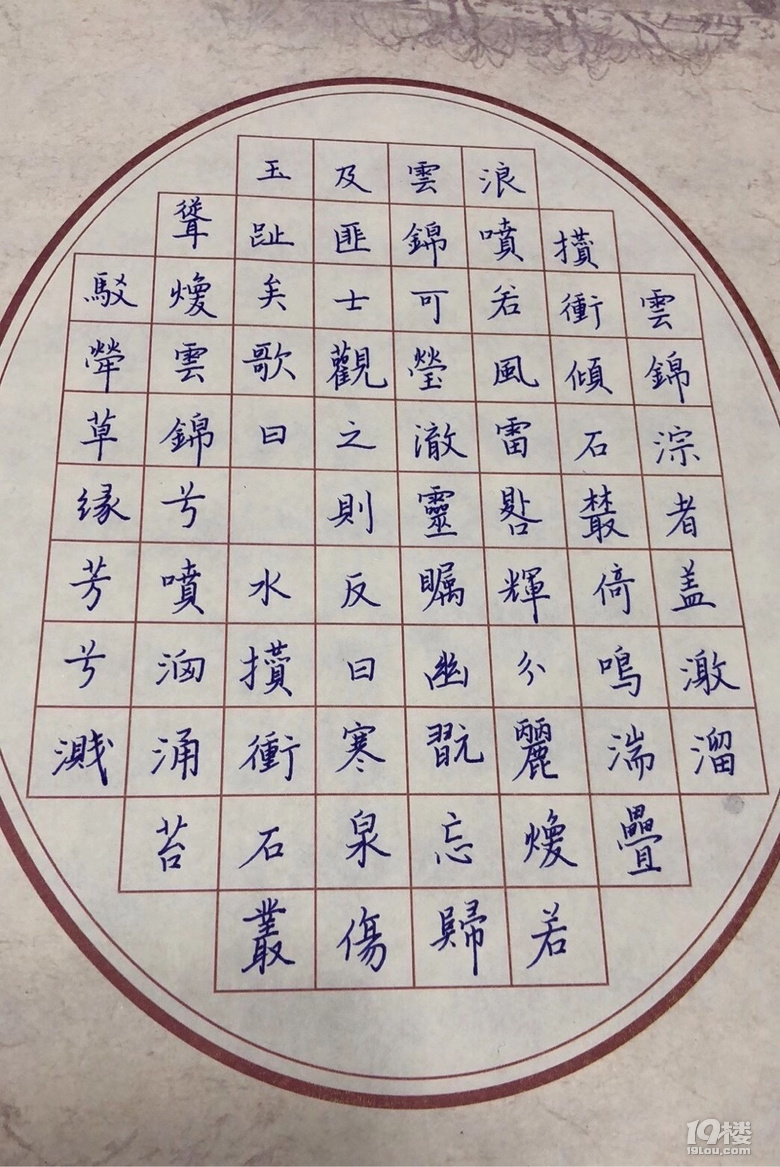 雲錦淙者盖激溜
攢衝傾石叢倚鳴湍疊
浪噴若風雷輝分麗煥若
雲錦可瑩澈靈矚幽翫忘歸
及匪士觀之則反曰寒泉傷
玉趾矣歌曰 水攢衝石叢
聳煥雲錦兮噴洶涌苔
駁犖草緣芳兮濺
19楼
19lou.com